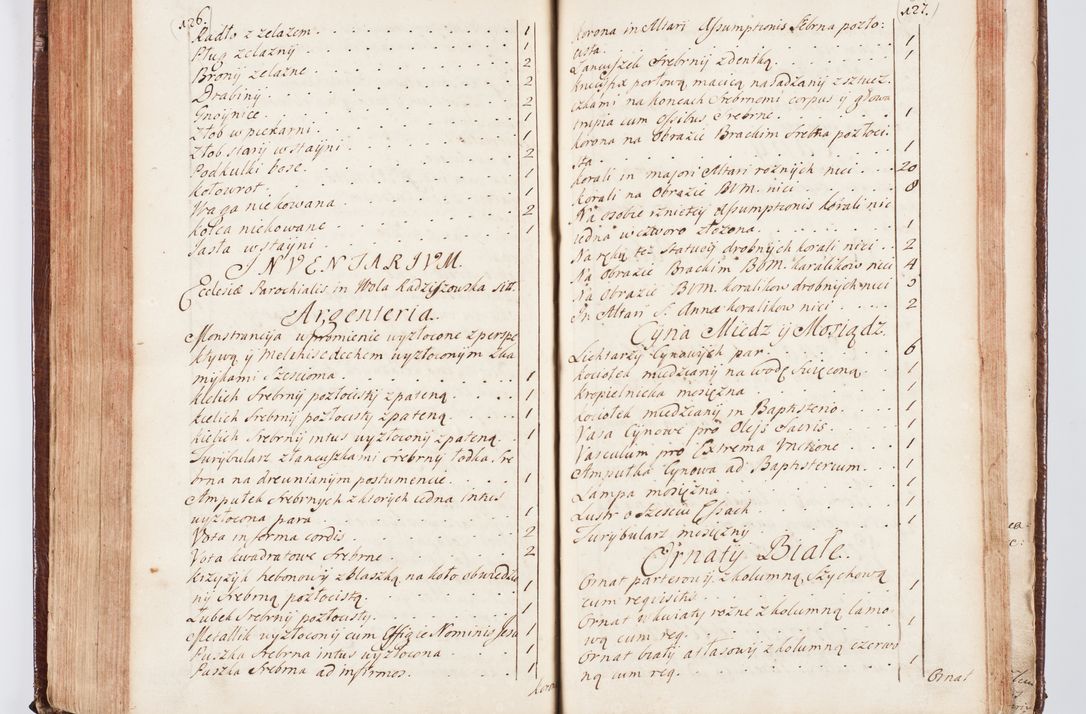 126.
Radło z zelazem 1
Pług zelazny 1
Brony zelazne 2
Drabiny 2
Gnoynice 2
Złob w piekarni 1
Złob stary w stayni 1
Podkulki bose 2
Kołowrot 1
Waga niekowana 1
Kolca niekowane 2
Jasła w stayni 1
INVENTARIUM
Ecclesiæ Parochialis in Wola Radziszowska sitt.
Argenteria.
Monstrancyja w promienie wyzłocone z perspe
ktywą y Melchisedechem wyzłoconym z ka
mykami szescioma 1
kielich srebrny pozłocisty z pateną 1
kielich srebrny pozłocisty z pateną 1
kielich srebrny intus wyzłocony z pateną 1
Turybularz z łancuszkami srebrny łodka sre
brna na drewnianym postumencie 1
Ampułek srebrnych z ktorych iedna intus
wyzłocona para 1
Vota in forma cordis 2
Vota kwadratowe srebrne 2
krzyzyk hebonowy z blaszką na koło obwiedzio
ny srebrną pozłocistą 1
Łubek srebrny pozłocisty 1
Metallik wyzłocony cum Effigie Nominis Jesu 1
Puszka srebrna intus wyzłocona 1
Puszka srebrna ad infirmos 1
koro
127.
korona in Altari Assumptionis srebrna pozło
cista 1
Łancuszek srebrny z dentką 1
krucyfix perłową macicą nasadzany z sztucz
czkami na koncach srebrnemi corpus y głowa
trupia cum ossibus srebrne 1
korona na Obrazie Brackim srebrna pozłoci
sta 1
korali in majori Altari roznych nici 20
korali na Obrazie BVM. nici 8
Na osobie rznietey Assumptionis korali nic
iedna w czworo złozona 1
Na ręku tey statuey drobnych korali nici 2
Na Obrazie Brackim BVM. karalikow nici 4
Na Obrazie BVM. koralikow drobnych nici 3
In Altari S. Annæ koralikow nici 2
Cyna Miedz y Mosiądz.
Lichtarzy Cynowych par 6
kociołek miedziany na wodę święconą 1
kropielnicka mosięzna 1
kociołek miedziany in Baptisterio 1
Vasa Cynowe pro Oleis Sacris 1
Vasculum pro Extrema Unctione 1
Ampułka Cynowa ad Baptisterium 1
Lampa mosięzna 1
Lustr o szesciu Essach 1
Turybularz mosięzny 1
Ornaty Białe.
Ornat parterowy z kolumną szychową
cum reqvisitis 1
Ornat w kwiaty rozne z kolumną lamo
wą cum req. 1
Ornat biały atłasowy z kolumną czerwo
ną cum req. 1
Ornat